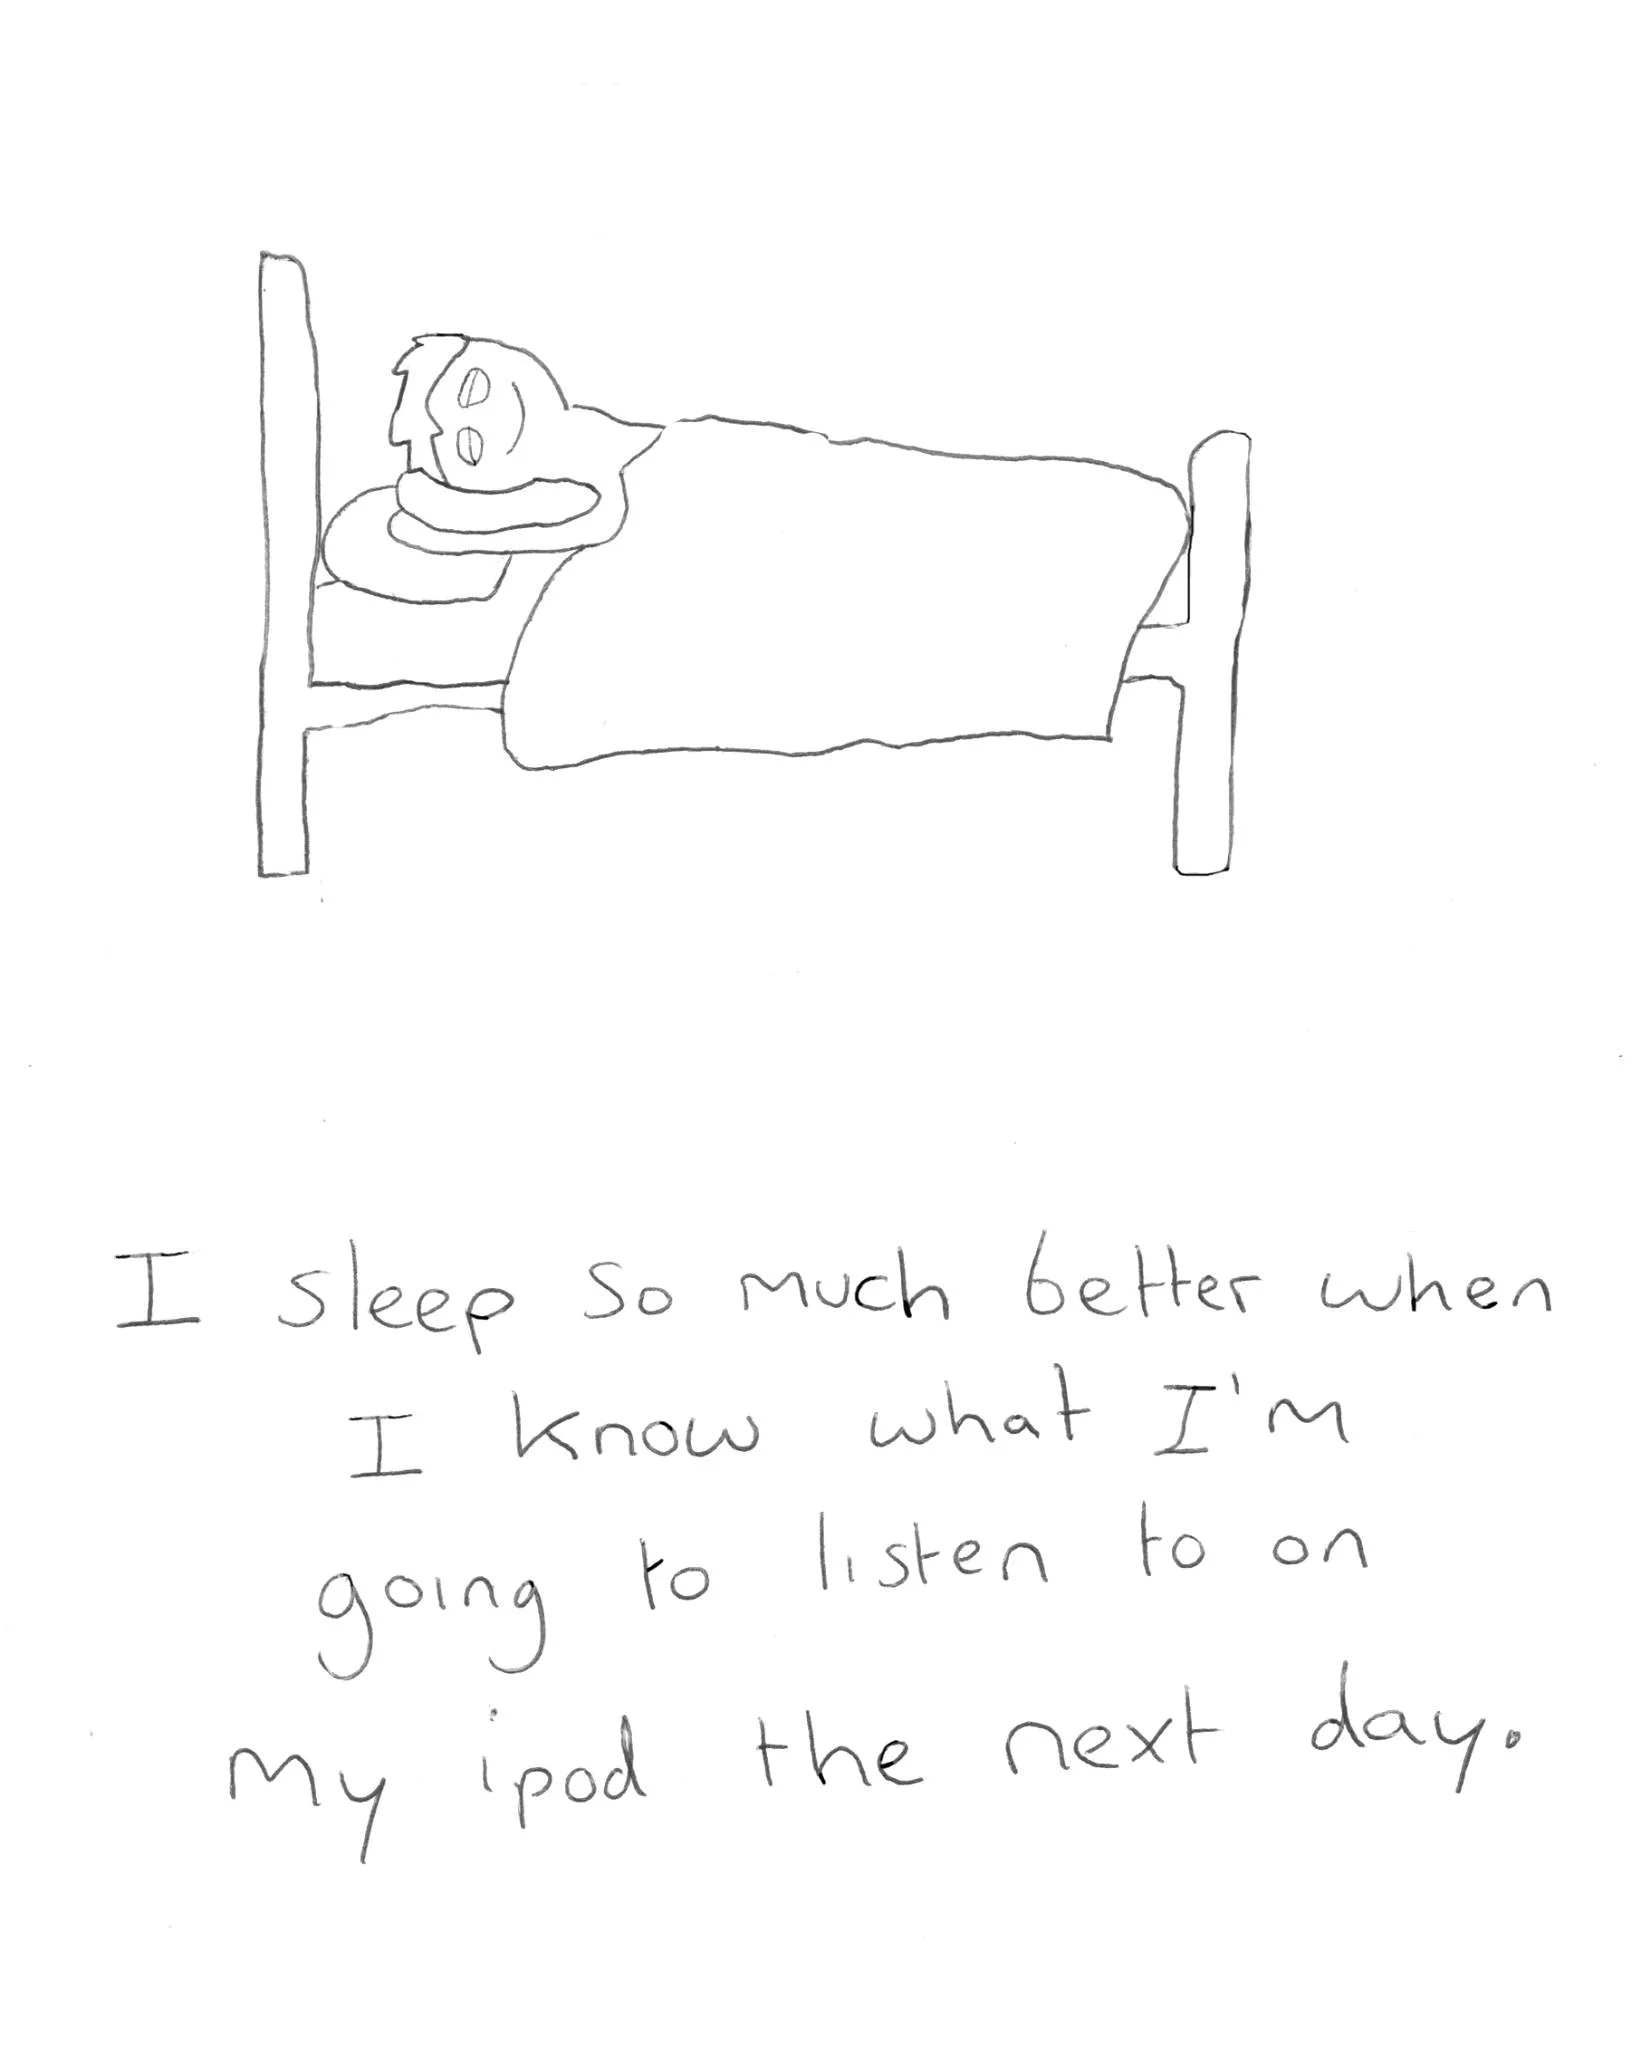 I sleep so much better when
I know what I'm
going to listen to on
my ipod the next day.